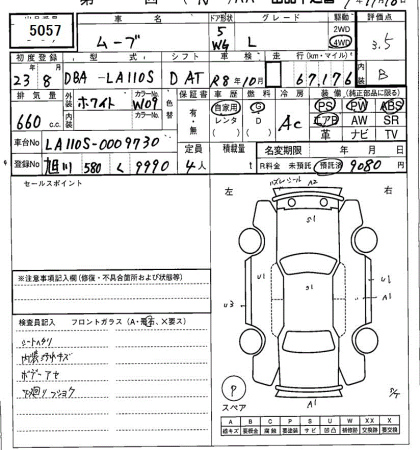 出品番号
5057
車名
ムーブ
ドア形状
5
W4
グレード
L
駆動
2WD
4WD
評価点
3.5
初度登録
23年8月
型式
DBA-LA110S
シフト
D AT
車検
R8年10月
走行(km・マイル)
67,176
内装
B
排気量
660 c.c.
外装 ホワイト
カラーNo
W09
内装
カラーNo
色替
保証書
有・無
車歴
自家用
レンタ
( )
燃料
G
D
( )
冷房
AC
装備(純正部品に限る)
PS PW ABS
エアB AW SR
革 ナビ TV
車台No
LA110S-0009730
登録No
旭川 580 く 9990
定員
4人
積載量
t
名変期限 年 月 日
R料金 未預託 預託済 9080円
セールスポイント
左 右
A2
S1
U1
S1
U1
A1
U3
A1
P
スペア
※注意事項記入欄(修復・不具合箇所および状態等)
検査員記入 フロントガラス(A・飛石、X要ス)
シートヘタリ
ボデーアセ
下廻りフショク
A B C P S U W X XX
総キズ 要板金 腐蝕 要塗装 サビ 凹 補修跡 要交換 交換済